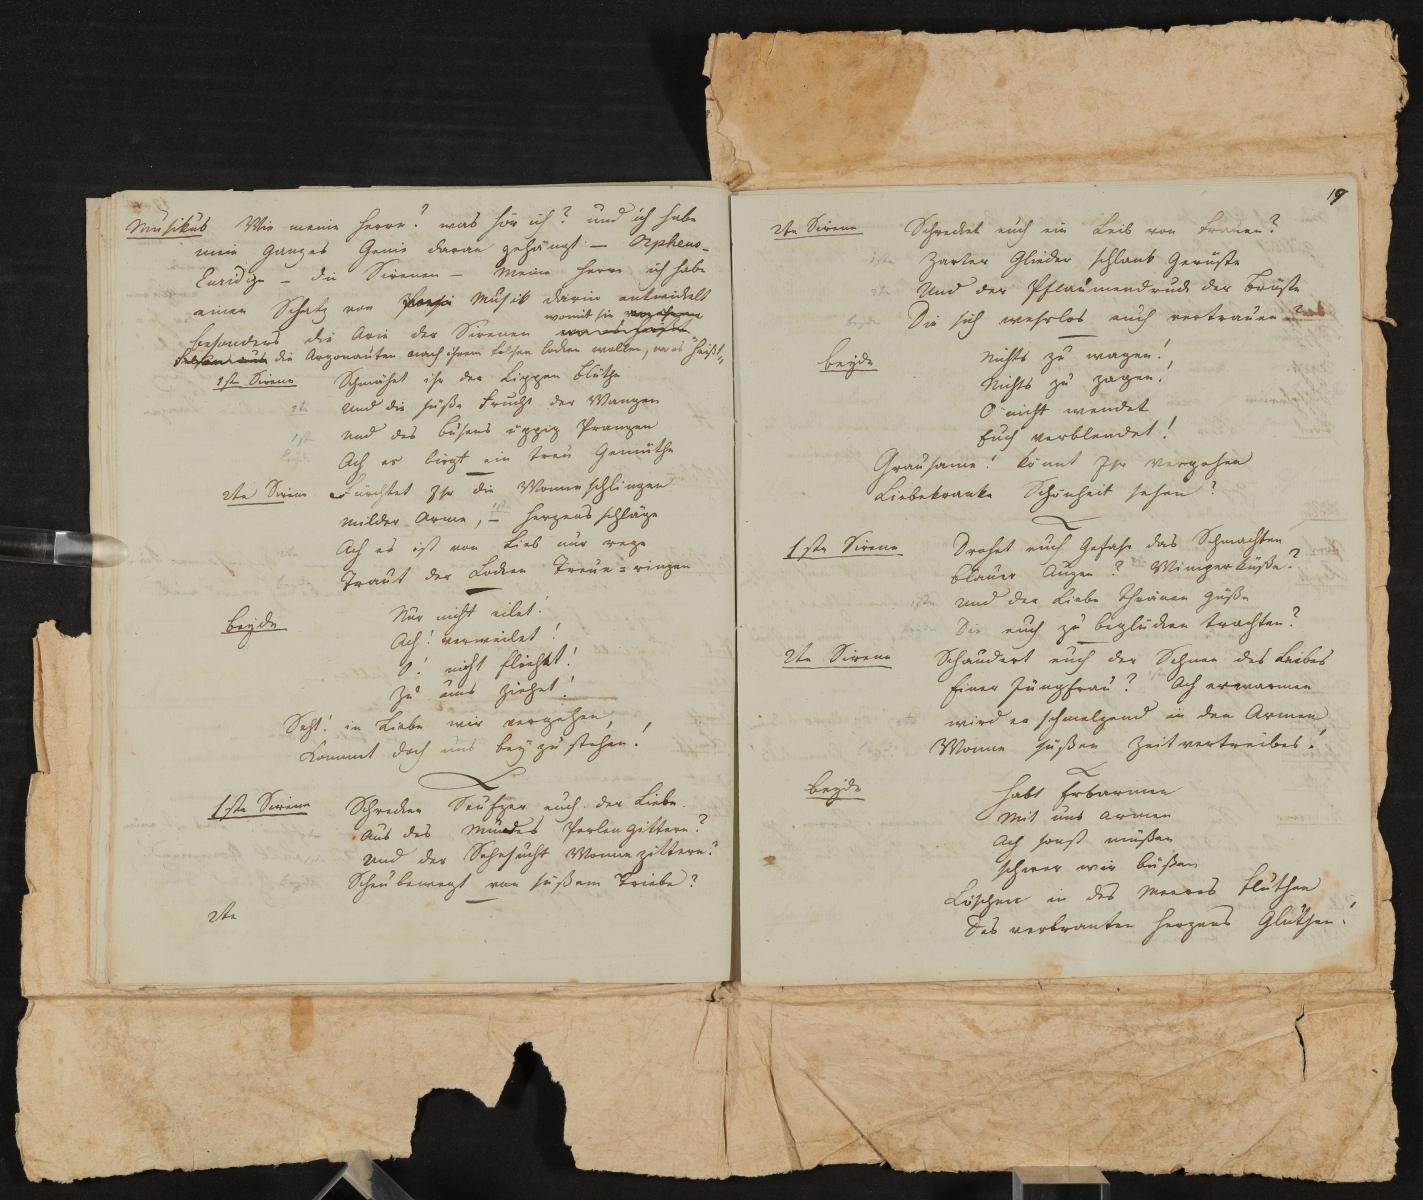 Musikus Wie meine Herrn? was hör ich? und ich habe
mein ganzes Genie daran gehängt — Orpheus-
Euridize — die Sirenen — meine Herrn ich habe
einen Schatz von Poesie Musik darin entwickelt
besonders die Arie der Sirenen womit sie
die Argonauten nach ihrem Felsen locken wollen, wo es heißt:
1ste Sirene Schmähet ihr der Lippen Blüthe
2te Und die süße Frucht der Wangen
1ste Und des Busens üppig Prangen
beyde Ach es liegt ein treu Gemüthe
2te Sirene Fürchtet Ihr die Wonneschlingen
milder Arme, – 1ste Herzensschläge
Ach es ist von Lieb nur rege
Traut der Locken Treue=ringen
beyde Nur nicht eilet!
Ach! verweilet!
O! nicht fliehet!
Zu uns ziehet!
Seht! in Liebe wir vergehen,
Kommt doch uns bey zu stehen!
1ste Sirene Schrecken Seufzer euch der Liebe
Aus des Mundes Perlengittern?
Und der Sehnsucht Wonnezittern?
Scheu bewegt von süßem Triebe?
2te
19
2te Sirene Schrecket euch ein Leib von Frauen?
Zarter Glieder schlank Gerüste
Und der Pflaumendruck der Brüste
Die sich wehrlos euch vertrauen?
beyde Nichts zu wagen!
Nichts zu zagen!
O nicht wendet
Euch verblendet!
Grausame! könnt Ihr vergehen
Liebekranke Schönheit sehen?
1ste Sirene Drohet euch Gefahr das Schmachten
blauer Augen? 2te Wimperküße?
Und der Liebe Thränen Güße
Die euch zu beglücken trachten?
2te Sirene Schaudert euch der Schnee des Leibes
Einer Jungfrau? Ach erwarmen
wird er schmelzend in den Armen
Wonne süßen Zeitvertreibes!
beyde Habt Erbarmen
Mit uns armen
Ach sonst müßen
schwer wir büßen
Löschen in des Meeres Fluthen
Des verbranten Herzens Gluthen!